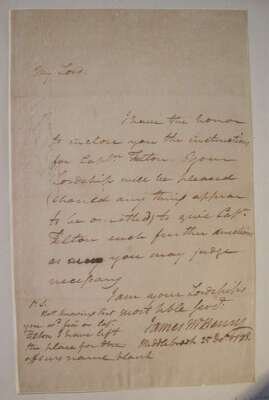 My Lord.
I have the honor
to inclose you the instructions
for Capt. Felton. Your
Lordship will be pleased
(should any thing appear
to be omitted) to give Capt.
Felton such further directions
as you may judge
necessary
I am your Lordships
most hble serv.
James McHenry
Middlebrook 25 Dec
P.S.
Not knowing but
you
Felton I have left
the place for the
officers name blank